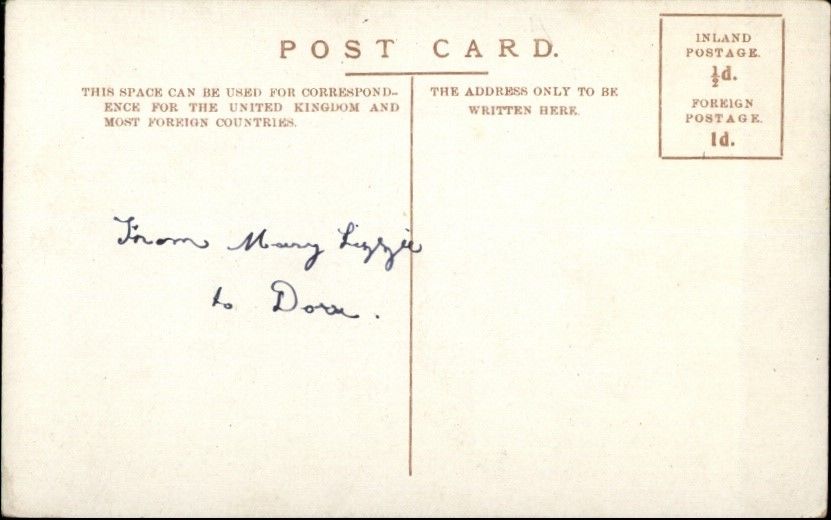 POST CARD.
THIS SPACE CAN BE USED FOR CORRESPOND-
ENCE FOR THE UNITED KINGDOM AND
MOST FOREIGN COUNTRIES.
THE ADDRESS ONLY TO BE
WRITTEN HERE.
INLAND
POSTAGE.
½d.
FOREIGN
POSTAGE.
1d.
From Mary Lizzie
to Dora.